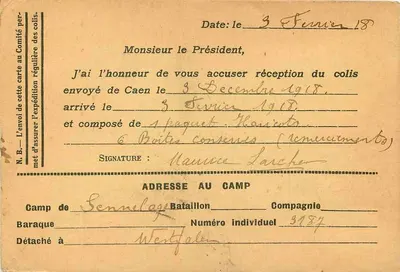 Date: le 3 Fevrier 18
Monsieur le Président,
J'ai l'honneur de vous accuser réception du colis
envoyé de Caen le 3 Decembre 1918.
arrivé le 3 Fevrier 1918.
et composé de 1 paquet Haricots
6 Boites conserves (remerciements)
SIGNATURE : Maurice Larcher
ADRESSE AU CAMP
Camp de Sennelager Bataillon Compagnie
Baraque Numéro individuel 3187
Détaché à Westfalen
N. B. — L'envoi de cette carte au Comité per-
met d'assurer l'expédition régulière des colis.